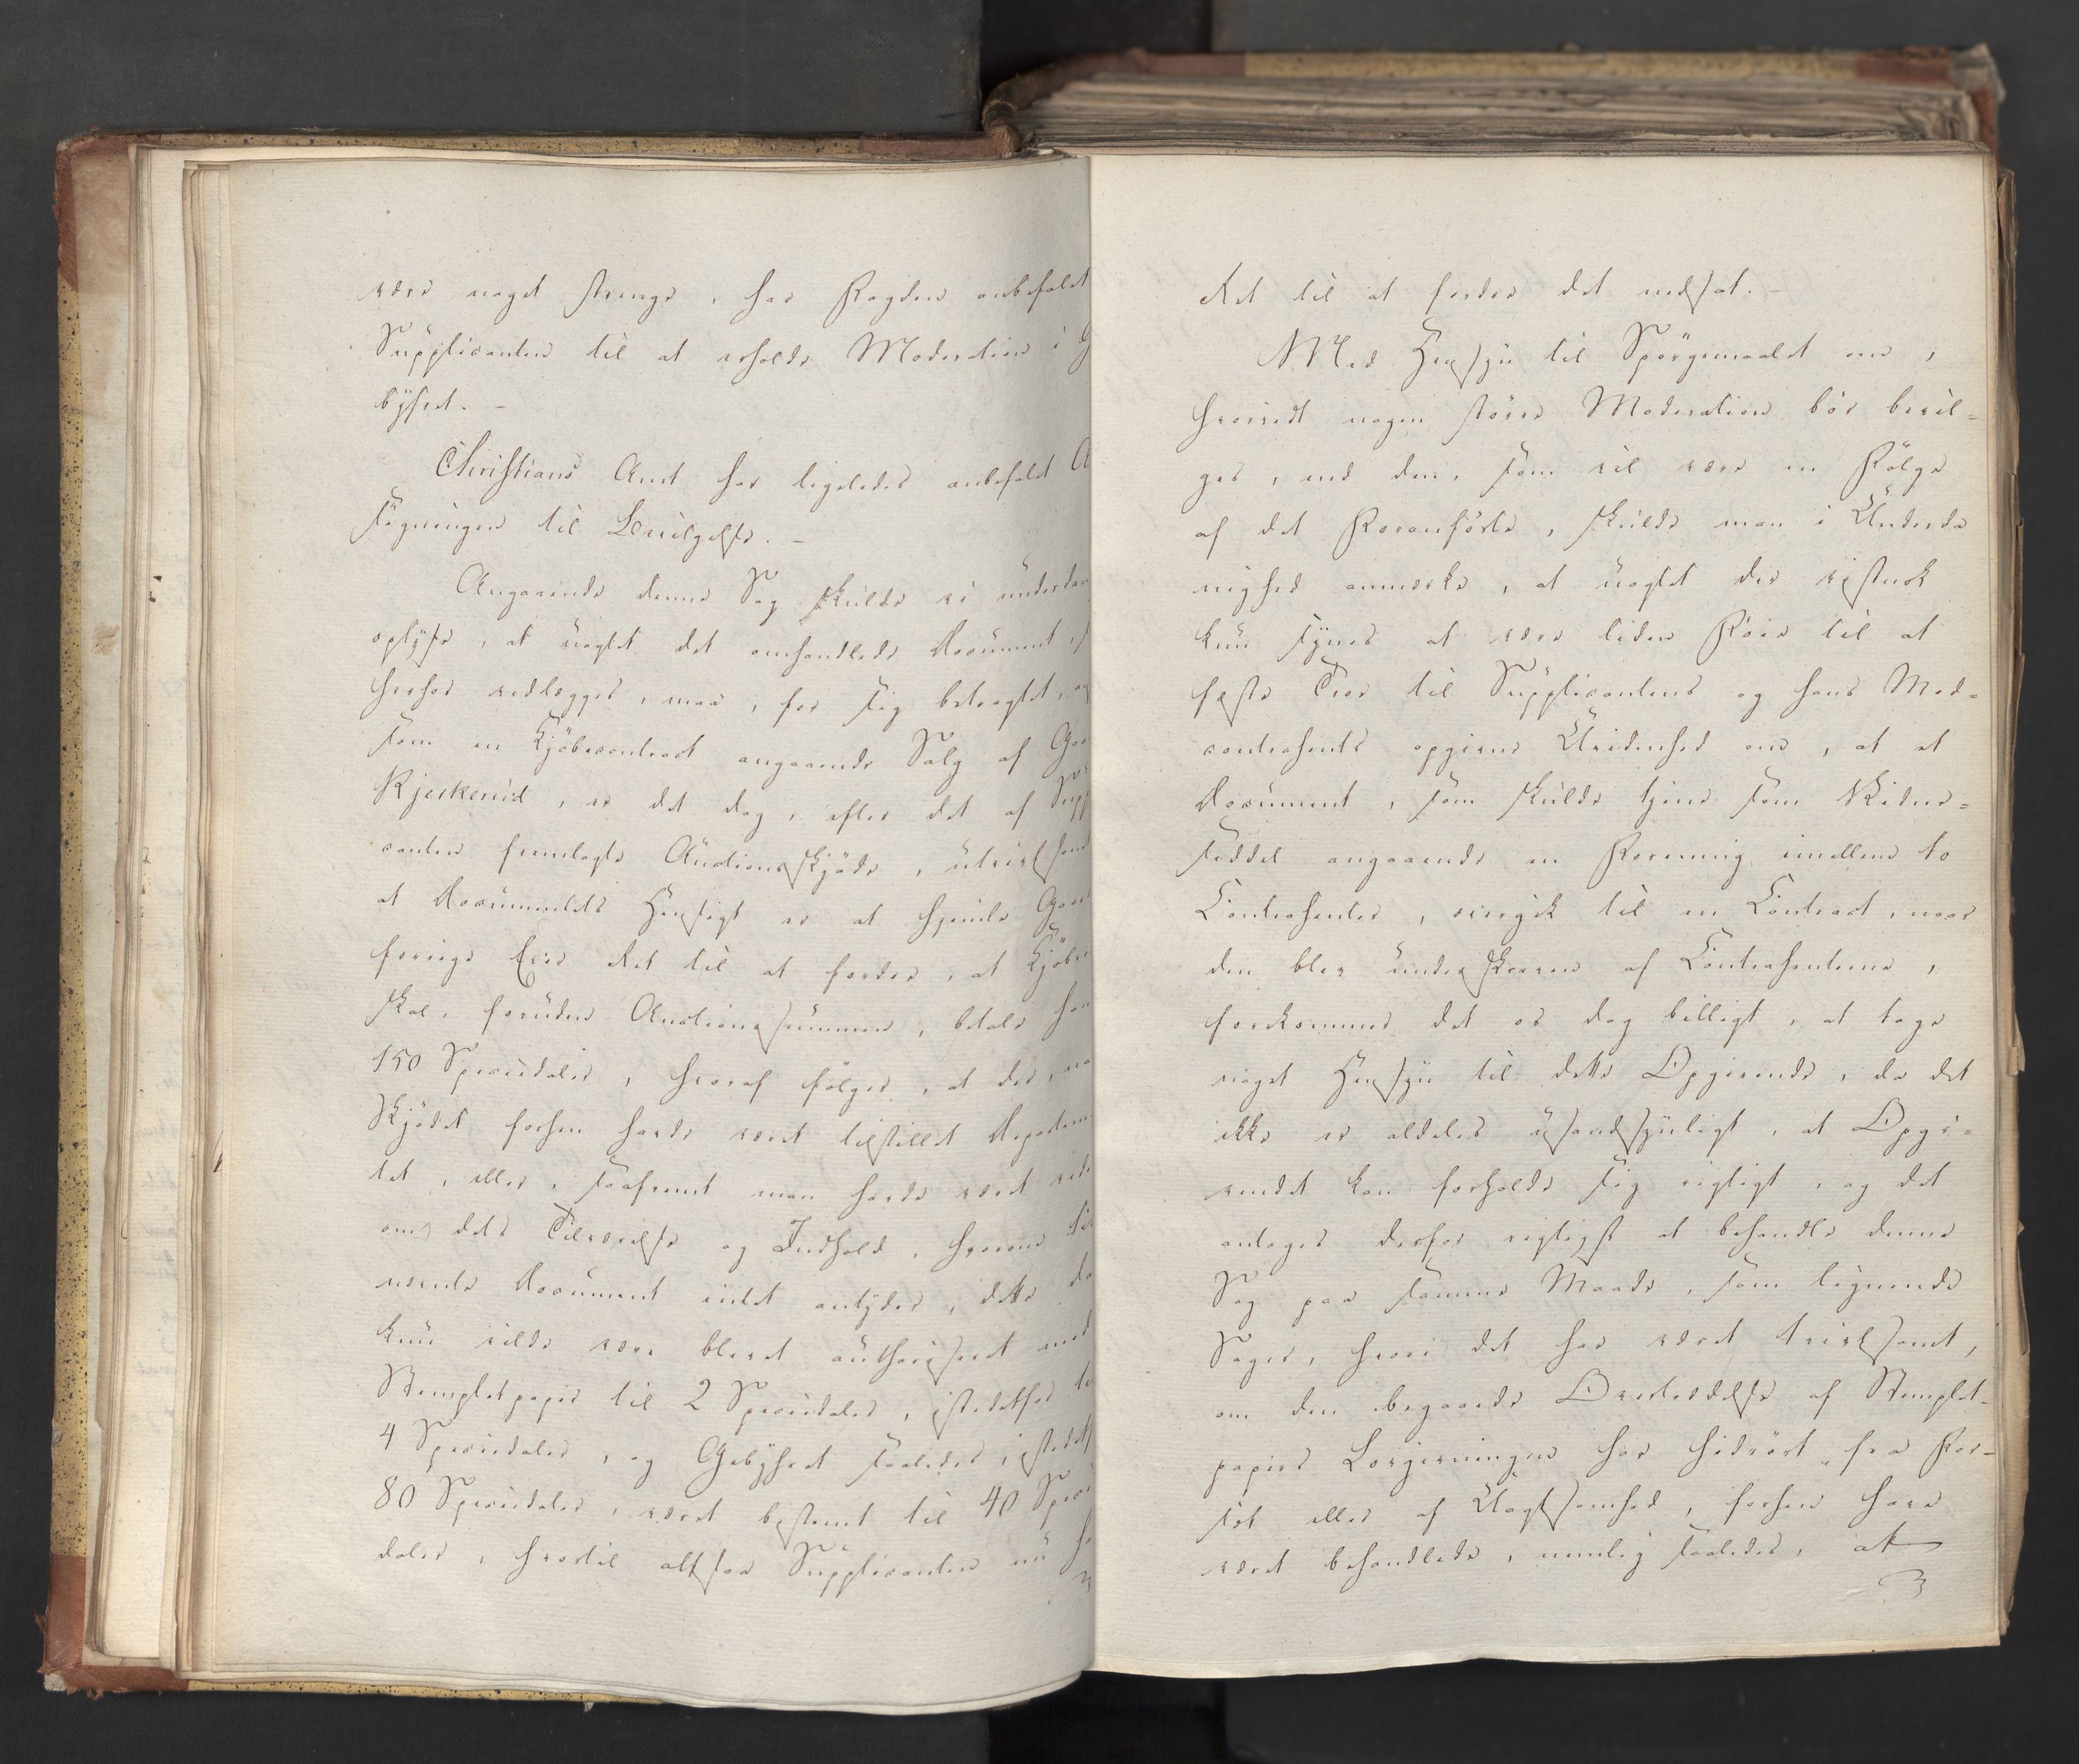 være noget strenge, har Fogden anbefalet
Supplicanten til at erholde Moderation i G
byhret. –
Christians Amt har ligeledes anbefalet A
søgningen til Bevilgelse. –
Angaaende denne Sag skulde vi underdan
oplyse, at uagtet det omhandlede Document, s
herhos vedlægges, maa, for sig betragtet, an
som en Kjöbecontract angaaende Salg af Gaa
Kjerkerud, er det dog, efter det af Supp
canten fremlagte Auctionsskjöde, utvivlsomt
at Documentets Hensigt er at hjemle Gaar
forrige Eier Ret til at fordre, at Kjöbe
skal, foruden Auctionssummen, betale ham
150 Speciedaler, hvoraf fölger, at der, naa
Skjödet forhen havde været tilstillet Departem
tet, eller, saafremt man havde været vide
om dets Tilværelse og Indhold, hvorom
værende Document intet antyder, dette da
kun vilde være blevet authoriseret med
Stemplet papir til 2 Speciedaler, istedetfor til
4 Speciedaler, og Gebyhret saaledes, istedetf
80 Speciedaler, været bestemt til 40 Speci
daler, hvortil altsaa Supplicanten nu ha
Ret til at fordre det nedsat. –
Med Hensyn til Spörgsmaalet om,
hvorvidt nogen större Moderation bör bevil=
ges, end den, som vil være en Fölge
af det Foranförte, skulde man i Underda
nighed anmærke, at uagtet der vistnok
kun synes at være liden Föie til at
fæste Troe til Supplicantens og hans Med=
contrahents opgivne Uvidenhed om, at et
Document, som skulde tjene som Vidne=
seddel angaaende en Forening imellem to
Contrahenter, overgik til en Contract, naar
den blev underskreven af Contrahenterne,
forekommer det os dog billigt, at tage
noget Hensyn til dette Opgivende, da det
ikke er aldeles usandsynligt, at Opgi=
vendet kan forholde sig rigtigt, og det
antages derfor rigtigst at behandle denne
Sag paa samme Maade, som lignende
Sager, hvori det har været tvivlsomt,
om den begaaede Overtrædelse af Stemplet=
papirs Lovgivningen har hidrört fra For=
sæt eller af Uagtsomhed, forhen have
været behandlede, nemlig saaledes, at